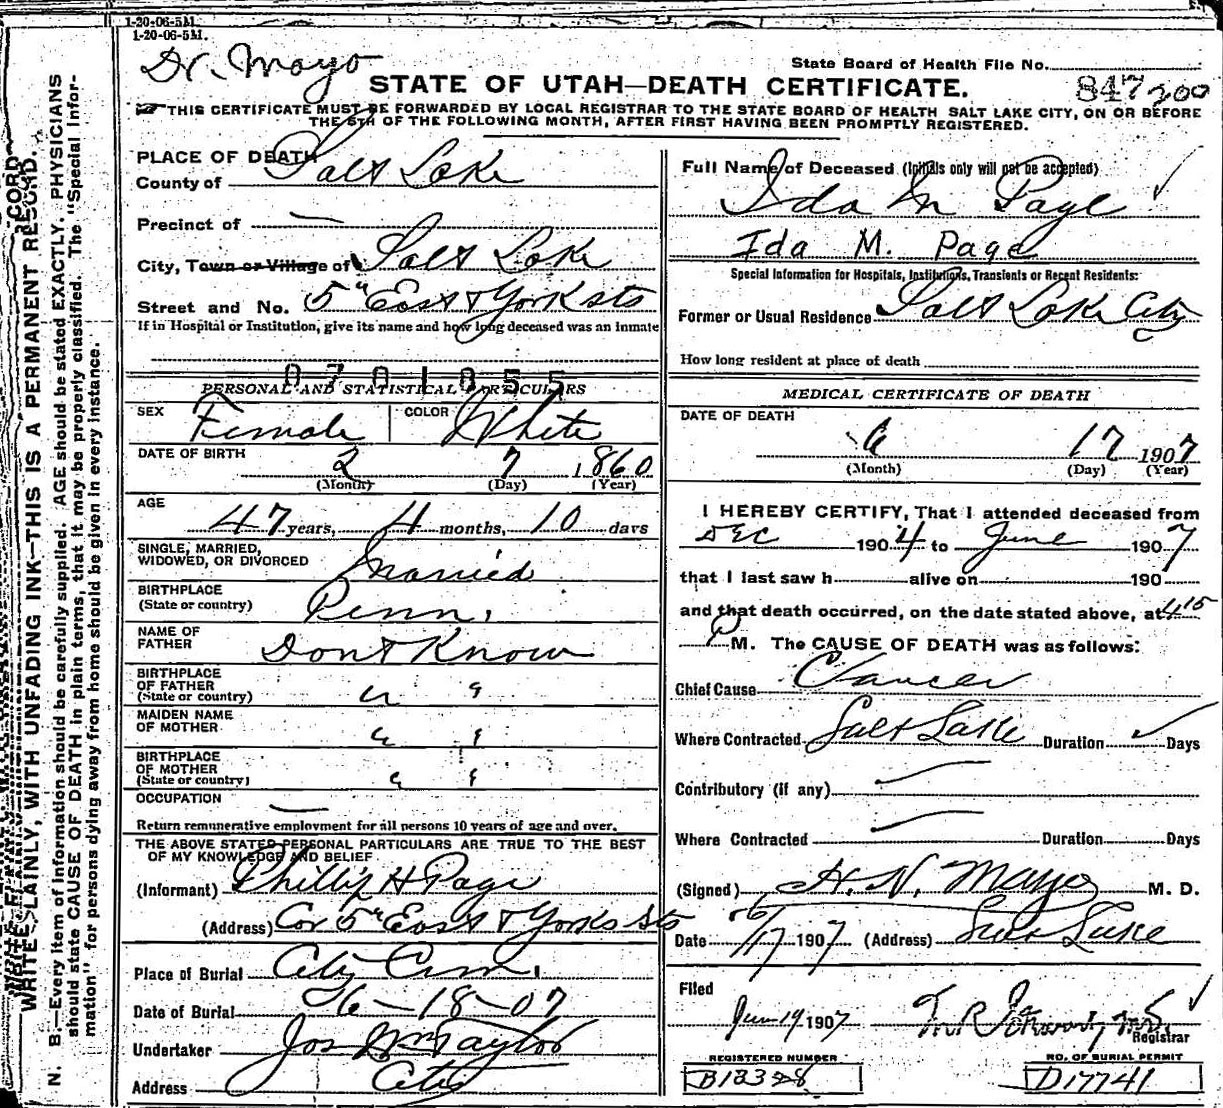 1-20-06-5M.
1-20-06-5M.
Dr. Mayo
State Board of Health File No.
STATE OF UTAH—DEATH CERTIFICATE.
847 200
THIS CERTIFICATE MUST BE FORWARDED BY LOCAL REGISTRAR TO THE STATE BOARD OF HEALTH SALT LAKE CITY, ON OR BEFORE
THE 5TH OF THE FOLLOWING MONTH, AFTER FIRST HAVING BEEN PROMPTLY REGISTERED.
WRITE PLAINLY, WITH UNFADING INK—THIS IS A PERMANENT RECORD.
N. B.—Every item of information should be carefully supplied. AGE should be stated EXACTLY. PHYSICIANS
should state CAUSE OF DEATH in plain terms, that it may be properly classified. The "Special Infor-
mation" for persons dying away from home should be given in every instance.
PLACE OF DEATH
County of Salt Lake
Precinct of —
City, Town or Village of Salt Lake
Street and No. 5" East & York sts
If in Hospital or Institution, give its name and how long deceased was an Inmate
0701855
PERSONAL AND STATISTICAL PARTICULARS
SEX Female COLOR White
DATE OF BIRTH
2 7 1860
(Month) (Day) (Year)
AGE
47 years, 4 months, 10 days
SINGLE, MARRIED,
WIDOWED, OR DIVORCED Married
BIRTHPLACE
(State or country) Penn.
NAME OF
FATHER Dont Know
BIRTHPLACE
OF FATHER " "
(State or country)
MAIDEN NAME
OF MOTHER " "
BIRTHPLACE
OF MOTHER " "
(State or country)
OCCUPATION —
Return remunerative employment for all persons 10 years of age and over.
THE ABOVE STATED PERSONAL PARTICULARS ARE TRUE TO THE BEST
OF MY KNOWLEDGE AND BELIEF
(Informant) Phillip H Page
(Address) Cor 5" East & York Sts
Place of Burial City Cem.
Date of Burial 6-18-07
Undertaker Jos Wm Taylor
Address City
Full Name of Deceased (Initials only will not be accepted)
Ida M Page
Ida M. Page
Special Information for Hospitals, Institutions, Transients or Recent Residents:
Former or Usual Residence Salt Lake City
How long resident at place of death
MEDICAL CERTIFICATE OF DEATH
DATE OF DEATH
6 17 1907
(Month) (Day) (Year)
I HEREBY CERTIFY, That I attended deceased from
Dec 1904 to June 1907
that I last saw h alive on 190
and that death occurred, on the date stated above, at 4 15
P M. The CAUSE OF DEATH was as follows:
Chief Cause Cancer
Where Contracted Salt Lake Duration Days
Contributory (if any)
Where Contracted Duration Days
(Signed) H. N. Mayo M. D.
Date 6/17 1907 (Address) Salt Lake
Filed
Jun 19 1907
Registrar
REGISTERED NUMBER
NO. OF BURIAL PERMIT
D17741